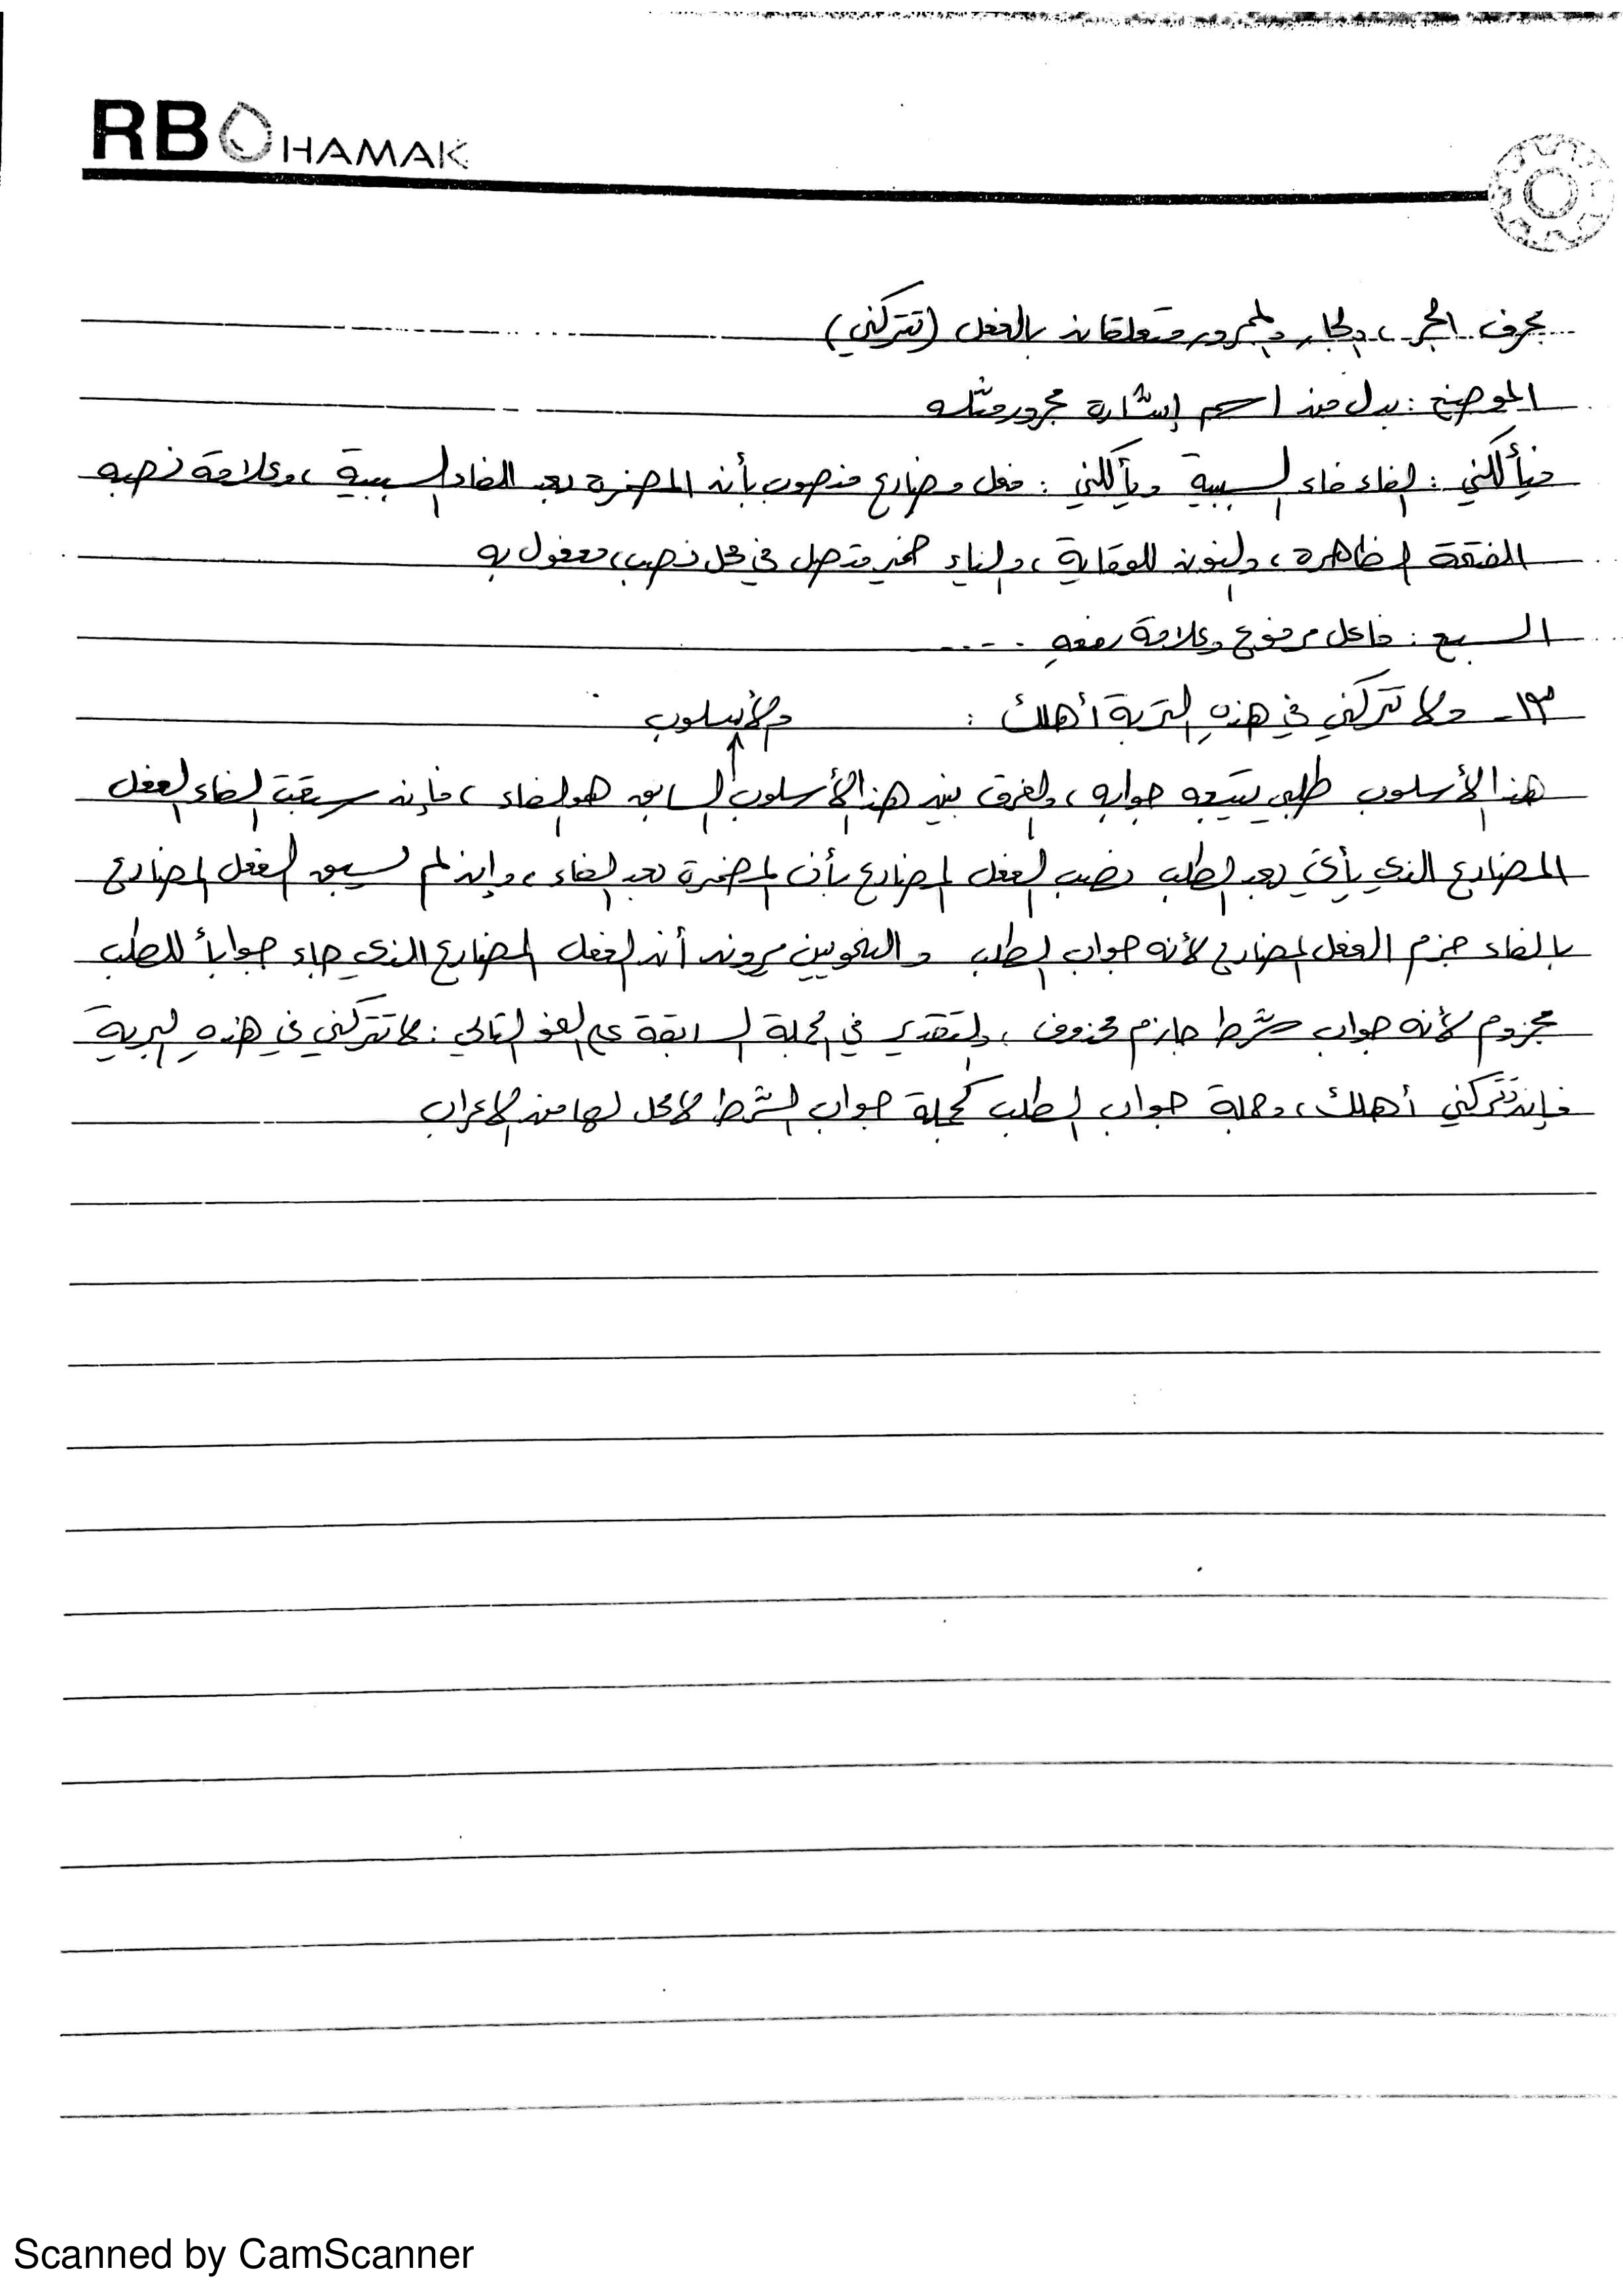 RB HAMAK
بحرف الجر، والجار والمجرور متعلقان بالفعل (تتركني)
الموضع: بدل من اسم إشارة مجرور مثله
فيأكلني: الفاء فاء السببية ويأكلني: فعل مضارع منصوب بأن المضمرة بعد الفاء السببية، وعلامة نصبه
الفتحة الظاهرة، والنون للوقاية، والياء ضمير متصل في محل نصب، مفعول به
السبع: فاعل مرفوع وعلامة رفعهِ ....
١٣- ولا تتركني في هذهِ التربة أهلك: والأسلوب
هذا الأسلوب طلبي يتبعه جوابه، والفرق بين هذا الأسلوب السابق هو الفاء، فإن سبقت الفاء الفعل
المضارع الذي يأتي بعد الطلب نصب الفعل المضارع بأن المضمرة بعد الفاء، وإن لم يسبق الفعل المضارع
بالفاء جزم الفعل المضارع لأنه جواب الطلب والنحويين يرون أن الفعل المضارع الذي جاء جواباً للطلب
مجزوم لأنه جواب شرط جازم محذوف، والتقدير في الجملة السابقة على النحو التالي: لا تتركني في هذهِ البرية
فإن تتركني أهلك، وجملة جواب الطلب كجملة جواب الشرط لا محل لها من الإعراب
Scanned by CamScanner